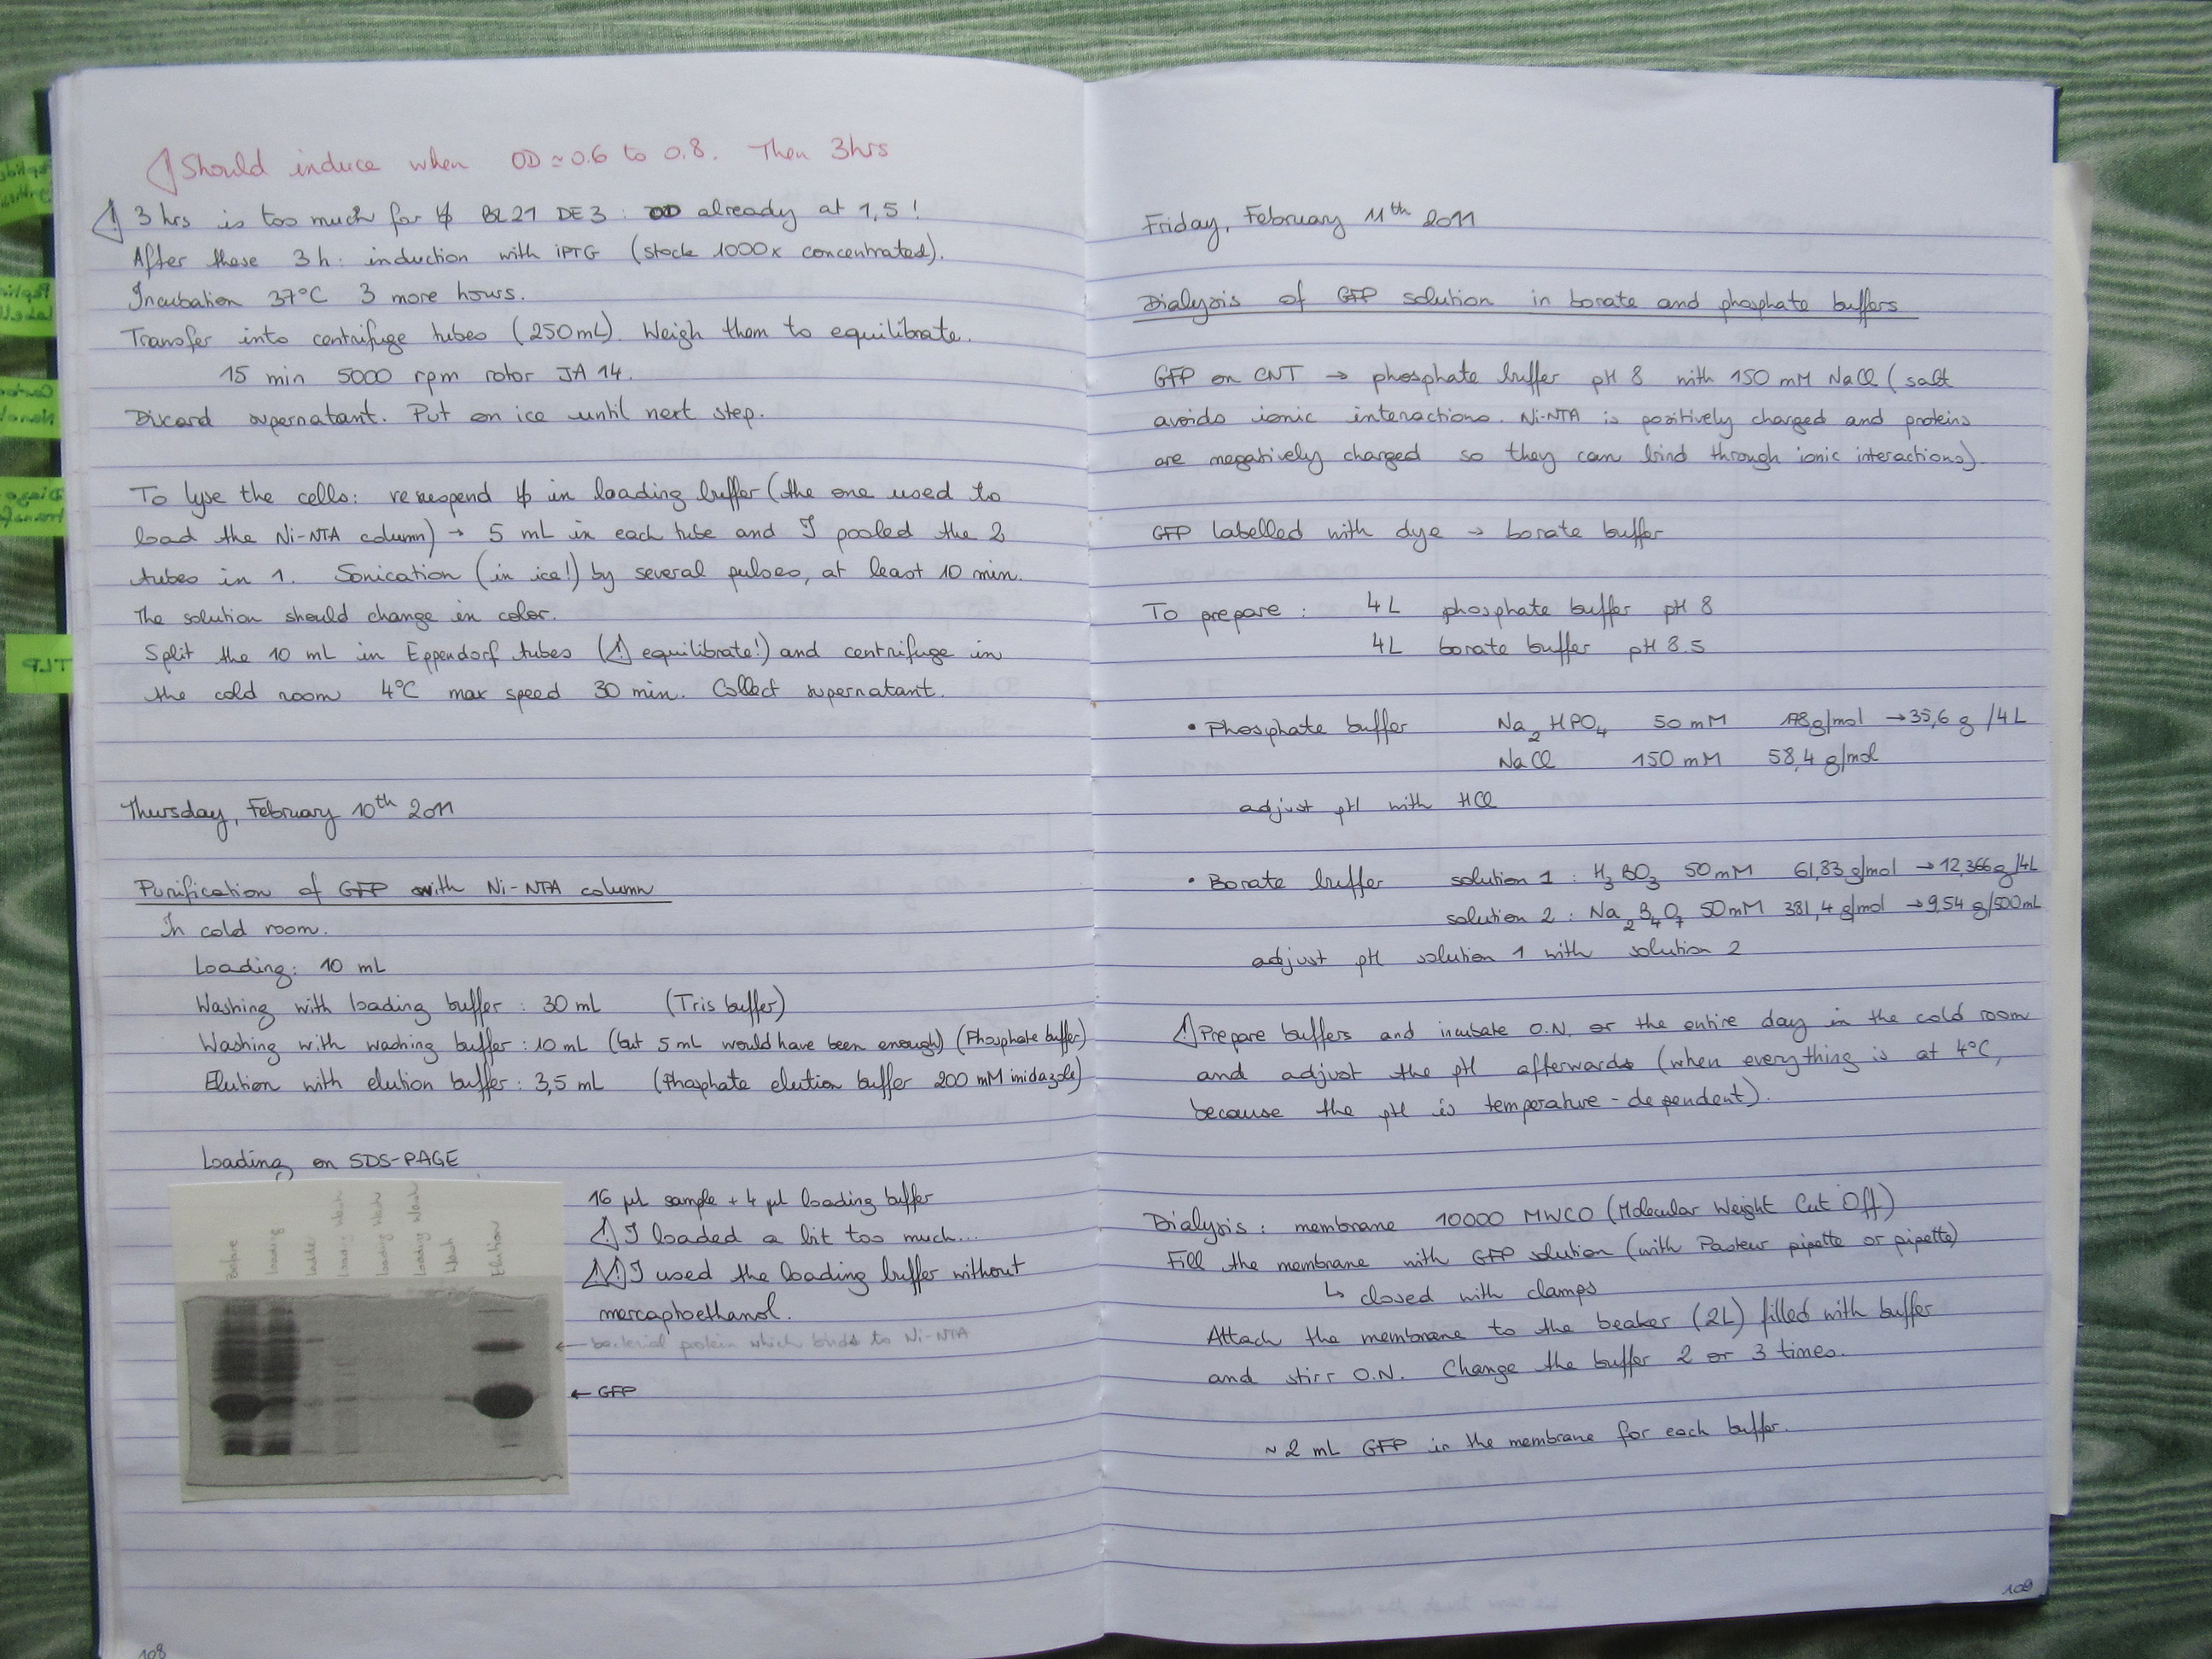 ⚠ Should induce when OD ≃ 0.6 to 0.8. Then 3hrs
⚠ 3 hrs is too much for BL21 DE3 : OD already at 1,5 !
After these 3h : induction with iPTG (stock 1000x concentrated).
Incubation 37°C 3 more hours.
Transfer into centrifuge tubes (250 mL). Weigh them to equilibrate.
15 min 5000 rpm rotor JA 14.
Discard supernatant. Put on ice until next step.
To lyse the cells: resuspend in loading buffer (the one used to
load the Ni-NTA column) → 5 mL in each tube and I pooled the 2
tubes in 1. Sonication (in ice!) by several pulses, at least 10 min.
The solution should change in color.
Split the 10 mL in Eppendorf tubes (⚠ equilibrate!) and centrifuge in
the cold room 4°C max speed 30 min. Collect supernatant.
Thursday, February 10th 2011
Purification of GFP with Ni-NTA column
In cold room.
Loading: 10 mL
Washing with loading buffer : 30 mL (Tris buffer)
Washing with washing buffer : 10 mL (but 5 mL would have been enough) (Phosphate buffer)
Elution with elution buffer : 3,5 mL (Phosphate elution buffer 200 mM imidazole)
Loading on SDS-PAGE
Before
Loading
Ladder
Loading Wash
Loading Wash
Loading Wash
Wash
Elution
16 µl sample + 4 µl loading buffer
⚠ I loaded a bit too much...
⚠⚠ I used the loading buffer without
mercaptoethanol.
← bacterial protein which binds to Ni-NTA
← GFP
108
Friday, February 11th 2011
Dialysis of GFP solution in borate and phosphate buffers
GFP on CNT → phosphate buffer pH 8 with 150 mM NaCl (salt
avoids ionic interactions. Ni-NTA is positively charged and proteins
are negatively charged so they can bind through ionic interactions).
GFP labelled with dye → borate buffer
To prepare : 4L phosphate buffer pH 8
4L borate buffer pH 8.5
• Phosphate buffer Na2HPO4 50 mM 178 g/mol → 35,6 g /4L
NaCl 150 mM 58,4 g/mol
adjust pH with HCl
• Borate buffer solution 1 : H3BO3 50 mM 61,83 g/mol → 12,366 g/4L
solution 2 : Na2B4O7 50 mM 381,4 g/mol → 9,54 g/500mL
adjust pH solution 1 with solution 2
⚠ Prepare buffers and incubate O.N. or the entire day in the cold room
and adjust the pH afterwards (when everything is at 4°C,
because the pH is temperature-dependent).
Dialysis : membrane 10000 MWCO (Molecular Weight Cut Off)
Fill the membrane with GFP solution (with Pasteur pipette or pipette)
↳ closed with clamps
Attach the membrane to the beaker (2L) filled with buffer
and stirr O.N. Change the buffer 2 or 3 times.
~ 2 mL GFP in the membrane for each buffer.
109